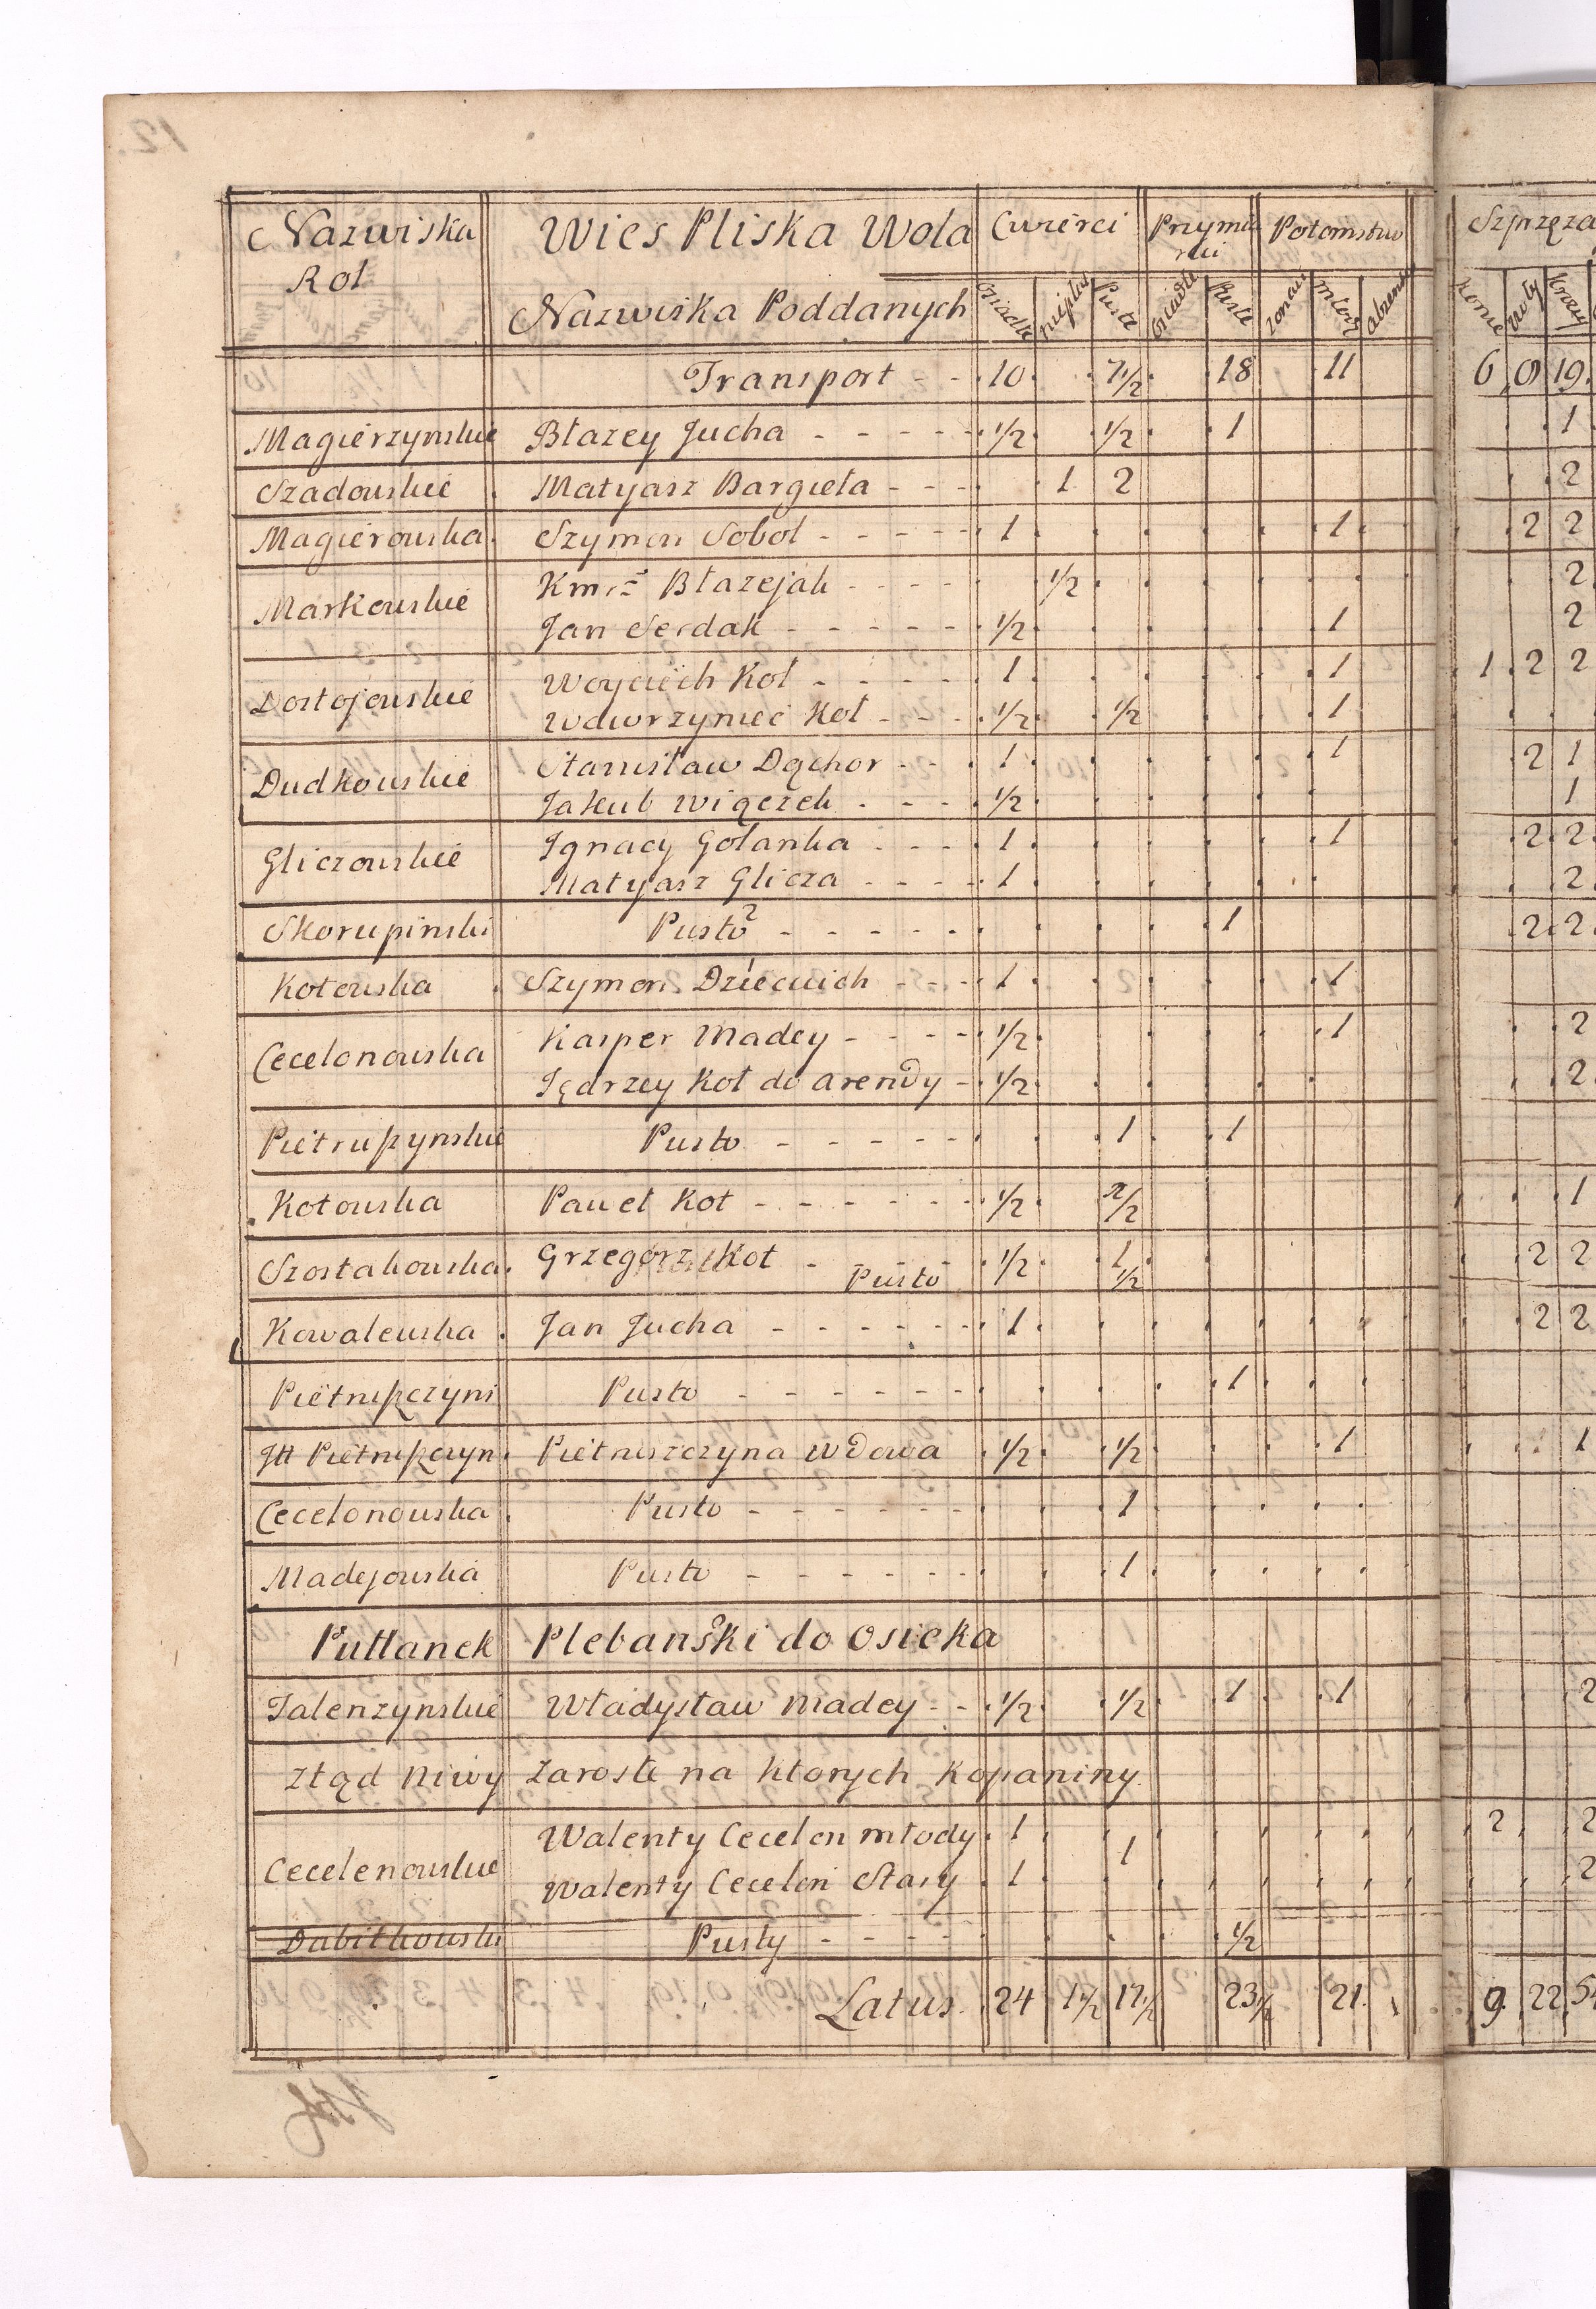 Nazwiska Rol | Wies Pliska Wola | Cwierci | Przymiarki | Potomstwo | Szprzęza
Nazwiska Poddanych | Osiadłe | Pusté | Osiadłe | Puste | Zonaci | młodz | absens | konie | woły | krowy
Transport - - 10 7 1/2 18 11 6 9 19
Magierzynskie Błazey Jucha - - - - - 1/2 1/2 1 1
Szadouskié Matyasz Bargieła - - - 1 2 2
Magierouska Szymon Soboł - - - - - 1 1 2 2
Markouskié
Błazejak - - - - 1/2 2
Jan Serdak - - - - - 1/2 1 2
Dostojouskié
Woyciech Kot - - - - - 1 1 1 2 2
Wawrzyniec Kot - - - 1/2 1/2 1
Dudkouskié
Stanisław Dąchor - - 1 1 2 1
Jakub Wiączek - - - 1/2 1
Gliczouskié
Ignacy Gołanka - - - 1 1 2 2
Matyasz Glicza - - - - 1 2
Skorupinski Pusto - - - - - - 1 2 2
Kotouska Szymon Dzieciuich - - - 1 1
Cecelonouska
Kasper Madey - - - - 1/2 1 2
Jędrzey Kot do arendy - 1/2 2
Piétrupzynskié Pusto - - - - - 1 1
Kotouska Paweł Kot - - - - - - 1/2 1/2 1
Szostakouska Grzegorz Kot - Pusto 1/2 1 1/2 2 2
Kowaleuska Jan Jucha - - - - - - 1 2 2
Piétrupczyni Pusto - - - - - - 1
Jtt Piétrupczyn Piétruszczyna wdowa 1/2 1/2 1 1
Cecelonouska Pusto - - - - - - 1
Madejouska Pusto - - - - - - 1
Putłanek Plebański do Osieka
Talenzynskié Władysław Madey - - 1/2 1/2 1 1 2
Ztąd Niwy Zarosłe na ktorych Kopaniny.
Cecelenouskié
Walenty Cecelon młody 1 1 2 2
Walenty Cecelon Stary 1 2
Dabitkouski Pusty - - - - 1/2
Latus. 24 1 1/2 17 1/2 23 1/2 21 9 22